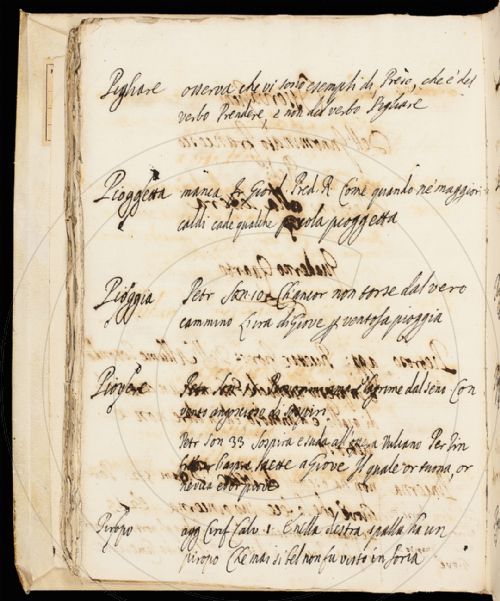 Pigliare osserva che vi sono esempli di Preso, che è del
verbo Prendere, e non del verbo Pigliare
Pioggetta manca Fr Giord. Pred. R. Come quando ne' maggiori
caldi cade qualche piccola pioggetta
Pioggia Petr Son 10 Ch'ancor non torse dal vero
cammino L'ira di Giove p ventosa pioggia
Piovere Petr Son 15 lagrime dal seno Con
vento angoscioso di sospiri
Petr Son 33 Sospira e suda all'opera Vulcano Per rin
saette a Giove Il quale or tuona, or
nevica et or piove
Piropo Cirif Calv 1 E nella destra spalla ha un
piropo Che mai sì bel non fu visto in Soria